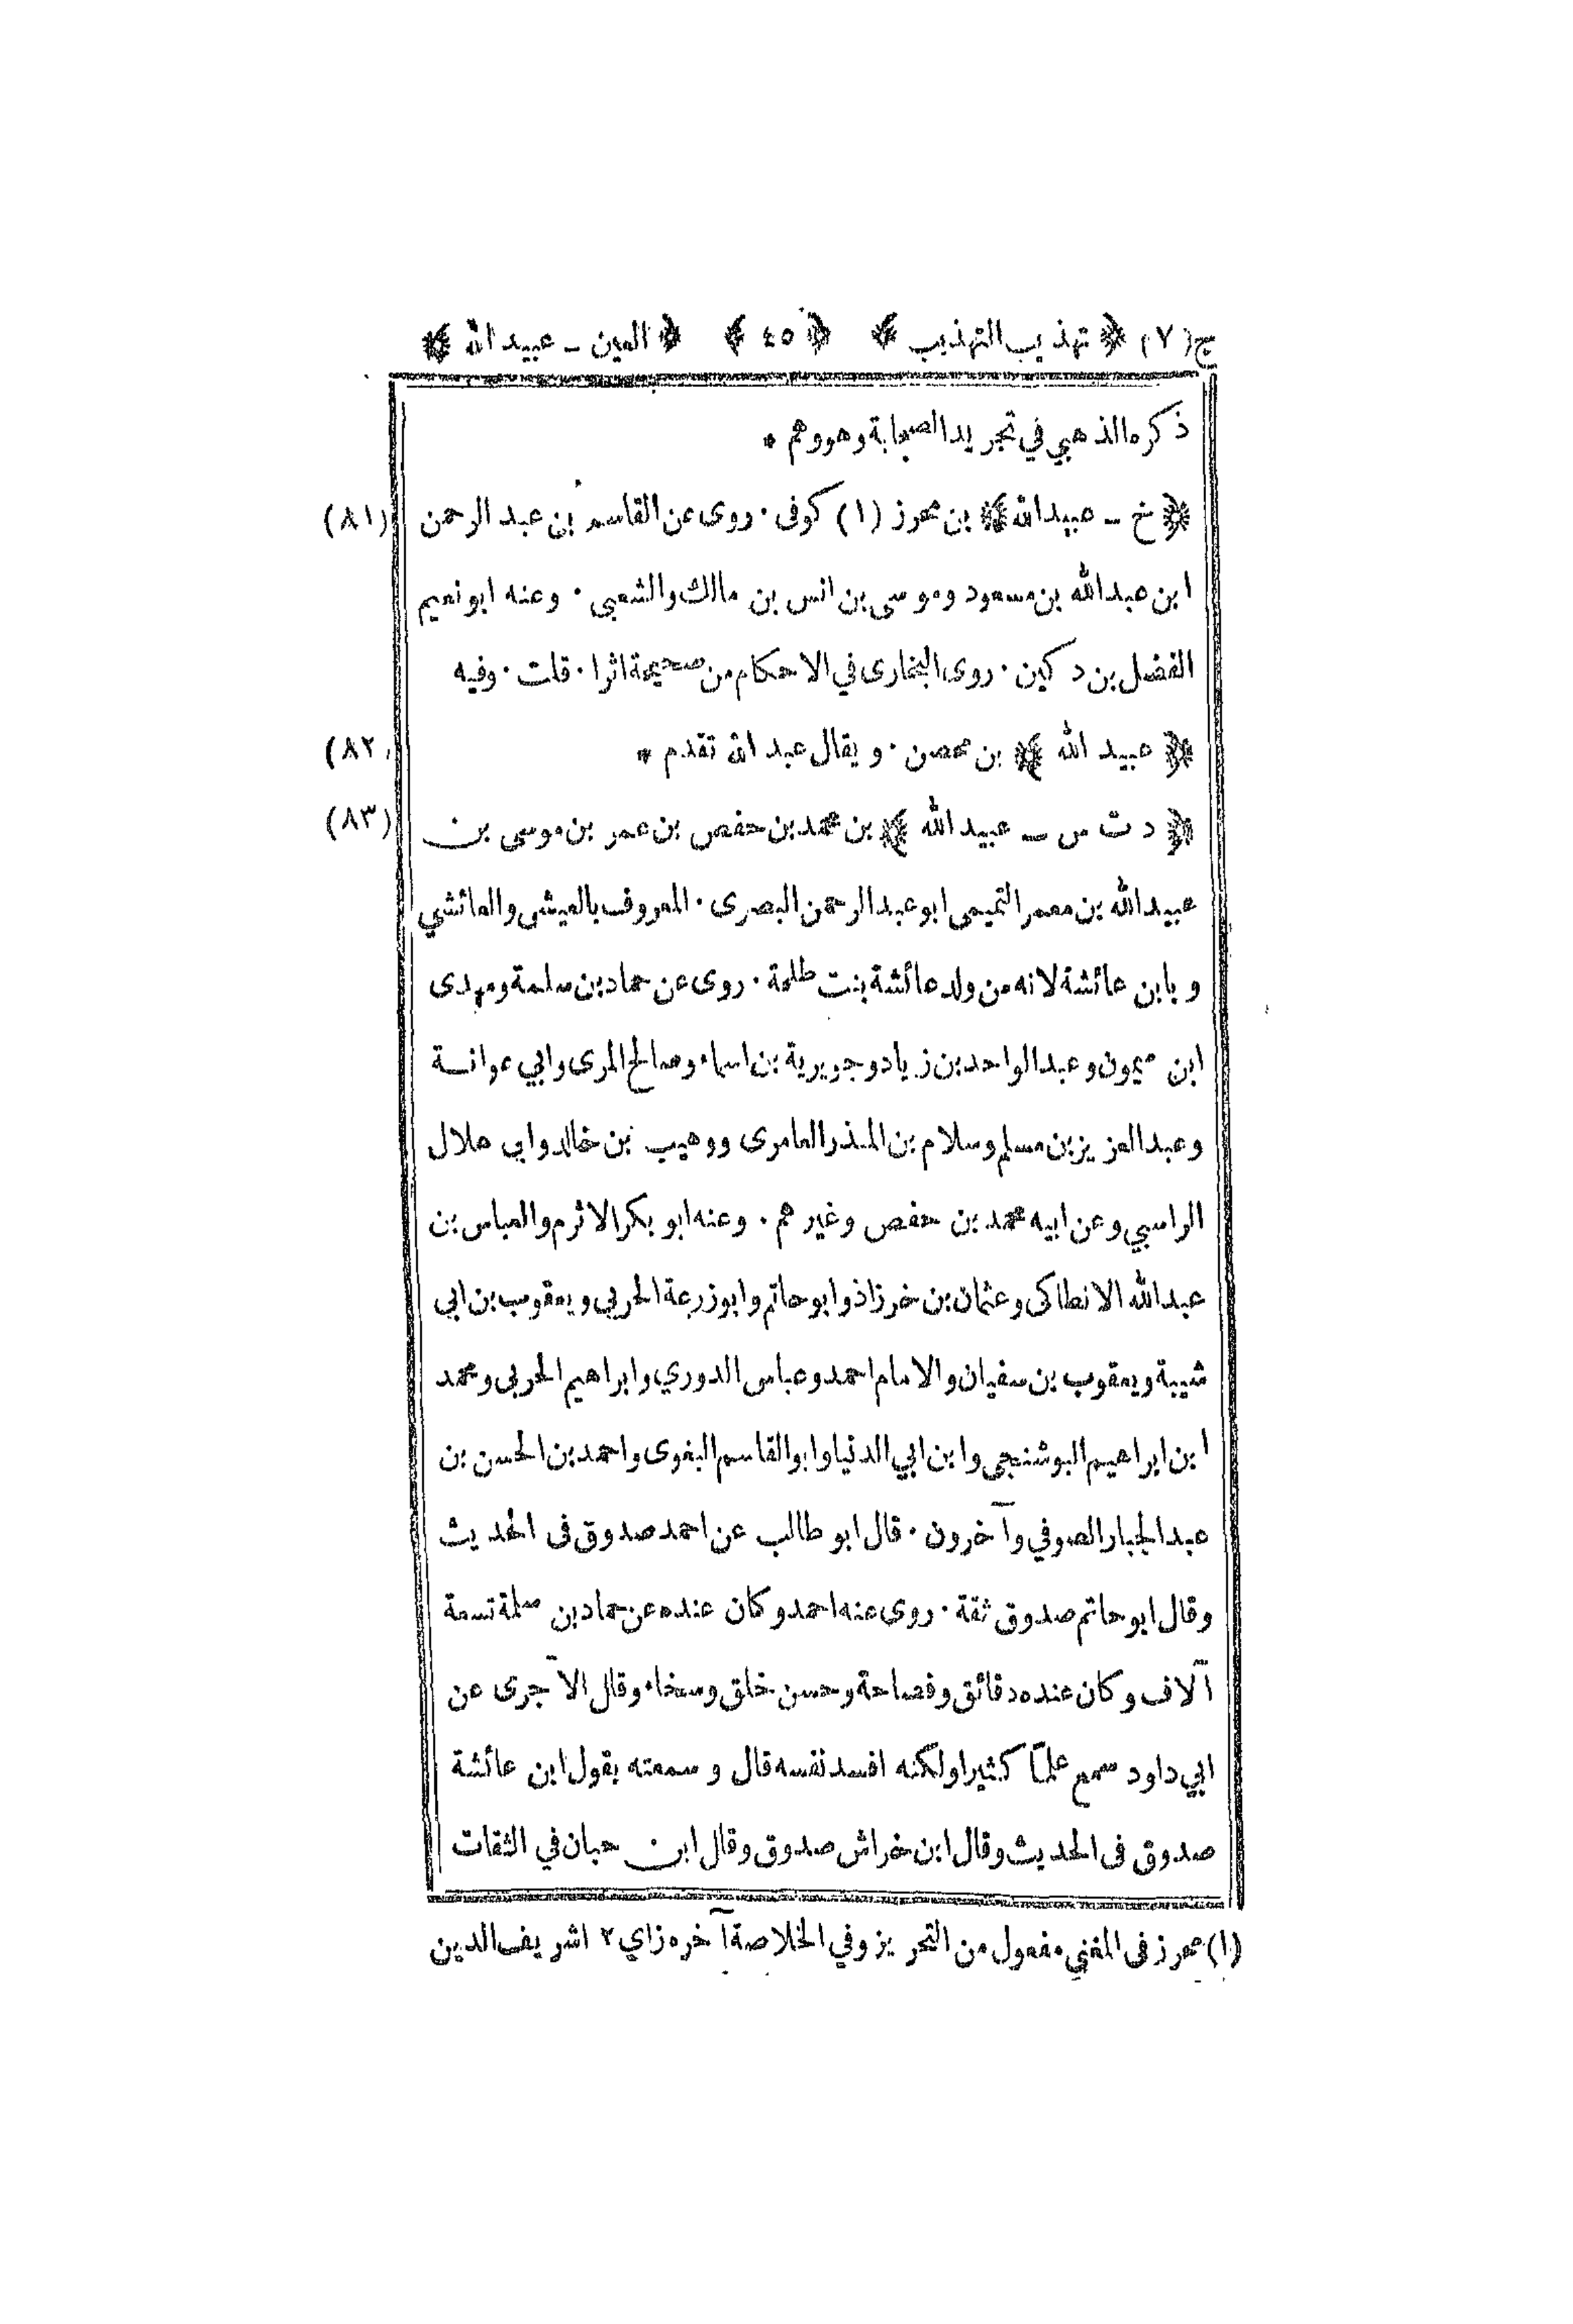 ج(٧) ﴿ تهذيب التهذيب ﴾ ﴿ ٤٥ ﴾ ﴿ العين ـ عبيد الله ﴾
ذكره الذهبي في تجريد الصحابة وهو وهم *
﴿ خ ـ عبيد الله ﴾ بن محرز (١) كوفى ٠ روى عن القاسم بن عبد الرحمن (٨١)
ابن عبدالله بن مسعود وموسى بن انس بن مالك والشعبى ٠ وعنه ابو نعيم
الفضل بن دكين ٠ روى البخارى في الاحكام من صحيحه اثرا ٠ قلت ٠ وفيه
﴿ عبيد الله ﴾ بن محصن ٠ و يقال عبد الله تقدم * (٨٢)
﴿ د ت س ـ عبيد الله ﴾ بن محمد بن حفص بن عمر بن موسى بن (٨٣)
عبيدالله بن معمر التيمى ابو عبدالرحمن البصرى ٠ المعروف بالعيشى والعائشي
و بابن عائشة لانه من ولد عائشة بنت طلحة ٠ روى عن حماد بن سلمة ومهدى
ابن ميمون وعبدالواحد بن زياد وجويرية بن اسماء وصالح المرى وابي عوانة
وعبد العزيز بن مسلم وسلام بن المنذر العامرى ووهيب بن خالد وابي هلال
الراسبي وعن ابيه محمد بن حفص وغيرهم ٠ وعنه ابو بكر الاثرم والعباس بن
عبدالله الانطاكى وعثمان بن خرزاذ وابوحاتم وابوزرعة الحربي ويعقوب بن ابي
شيبة ويعقوب بن سفيان والامام احمد وعباس الدوري وابراهيم الحربى ومحمد
ابن ابراهيم البوشنجى وابن ابي الدنيا وابو القاسم البغوى واحمد بن الحسن بن
عبد الجبار الصوفي وآخرون ٠ قال ابو طالب عن احمد صدوق فى الحديث
وقال ابو حاتم صدوق ثقة ٠ روى عنه احمد وكان عنده عن حماد بن سلمة تسعة
آلاف وكان عنده دقائق وفصاحة وحسن خلق وسخاء وقال الآجرى عن
ابي داود سمع علما كثيرا ولكنه افسد نفسه قال و سمعته يقول ابن عائشة
صدوق فى الحديث وقال ابن خراش صدوق وقال ابن حبان في الثقات
(١) محرز فى المغني مفعول من التحريز وفي الخلاصة آخره زاي ٢ اشريف الدين